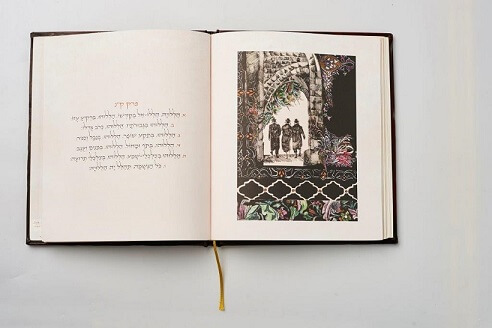 פרק ק״נ
א. הללויה, הללו-אל בקדשו; הללוהו, ברקיע עזו.
ב. הללוהו בגבורתיו; הללוהו, כרב גדלו.
ג. הללוהו, בתקע שופר; הללוהו, בנבל וכנור.
ד. הללוהו, בתף ומחול; הללוהו, במנים ועגב.
ה. הללוהו בצלצלי-שמע; הללוהו, בצלצלי תרועה.
ו. כל הנשמה, תהלל יה: הללויה.